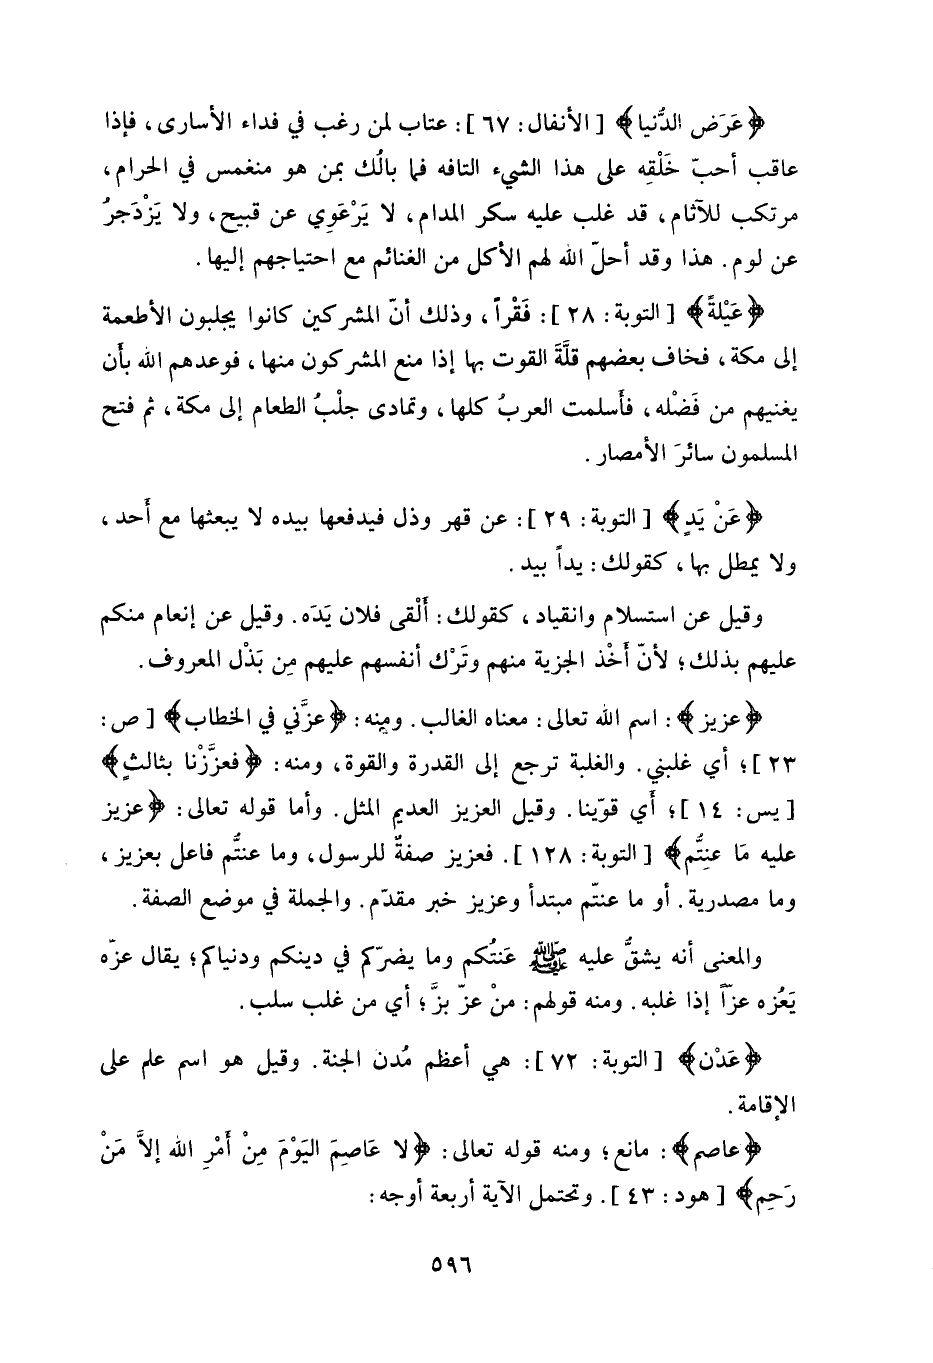 ﴿عَرَض الدُّنيا﴾ [ الأنفال: ٦٧ ]: عتاب لمن رغب في فداء الأسارى، فإذا
عاقب أحبّ خَلْقِه على هذا الشيء التافه فما بالُك بمن هو منغمس في الحرام،
مرتكب للآثام، قد غلب عليه سكر المدام، لا يَرْعَوِي عن قبيح، ولا يَزْدَجرُ
عن لوم. هذا وقد أحلّ الله لهم الأكل من الغنائم مع احتياجهم إليها.
﴿عَيْلةً﴾ [ التوبة: ٢٨ ]: فَقْراً، وذلك أنّ المشركين كانوا يجلبون الأطعمة
إلى مكة، فخاف بعضهم قلَّةَ القوت بها إذا منع المشركون منها، فوعدهم الله بأَن
يغنيهم من فَضْله، فأَسلمت العربُ كلها، وتمادى جلْبُ الطعام إلى مكة، ثم فتح
المسلمون سائرَ الأمصار.
﴿عَنْ يَدٍ﴾ [ التوبة: ٢٩ ]: عن قهر وذل فيدفعها بيده لا يبعثها مع أَحد،
ولا يمطل بها، كقولك: يداً بيد.
وقيل عن استسلام وانقياد، كقولك: أَلْقى فلان يَدَه. وقيل عن إنعام منكم
عليهم بذلك؛ لأنّ أَخْذ الجزية منهم وتَرْك أنفسهم عليهم مِن بَذْل المعروف.
﴿عزيز﴾: اسم الله تعالى: معناه الغالب. ومنه: ﴿عزَّني في الخطاب﴾ [ ص:
٢٣ ]؛ أي غلبني. والغلبة ترجع إلى القدرة والقوة، ومنه: ﴿فعزَّزْنا بثالثٍ﴾
[ يس: ١٤ ]؛ أَي قوّينا. وقيل العزيز العديم المثل. وأما قوله تعالى: ﴿عزيز
عليه مَا عنِتُّم﴾ [ التوبة: ١٢٨ ]. فعزيز صفةٌ للرسول، وما عنتُّم فاعل بعزيز،
وما مصدرية. أو ما عنتّم مبتدأ وعزيز خبر مقدّم. والجملة في موضع الصفة.
والمعنى أنه يشقُّ عليه ﷺ عَنتُكم وما يضرّكم في دينكم ودنياكم؛ يقال عزّه
يَعُزه عزّاً إذا غلبه. ومنه قولهم: منْ عزّ بزَّ؛ أي من غلب سلب.
﴿عَدْن﴾ [ التوبة: ٧٢ ]: هي أعظم مُدن الجنة. وقيل هو اسم علم على
الإقامة.
﴿عاصم﴾: مانع؛ ومنه قوله تعالى: ﴿لا عَاصِمَ اليَوْمَ مِنْ أَمْرِ الله إلاَّ مَنْ
رَحِم﴾ [ هود: ٤٣ ]. وتحتمل الآية أربعة أوجه:
٥٩٦